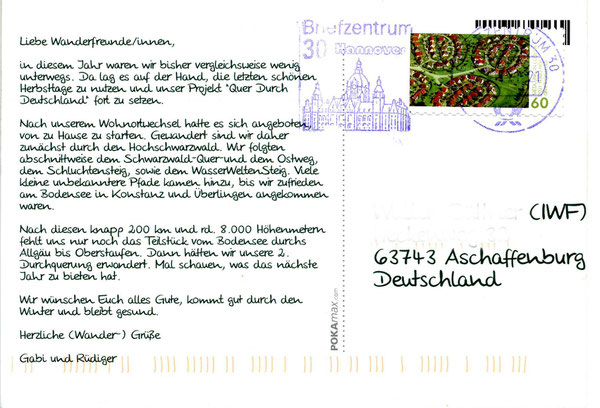 Liebe Wanderfreunde/innen,
in diesem Jahr waren wir bisher vergleichsweise wenig
unterwegs. Da lag es auf der Hand, die letzten schönen
Herbsttage zu nutzen und unser Projekt "Quer Durch
Deutschland" fort zu setzen.
Nach unserem Wohnortwechsel hatte es sich angeboten,
von zu Hause zu starten. Gewandert sind wir daher
zunächst durch den Hochschwarzwald. Wir folgten
abschnittweise dem Schwarzwald-Quer-und dem Ostweg,
dem Schluchtensteig, sowie dem WasserWeltenSteig. Viele
kleine unbekanntere Pfade kamen hinzu, bis wir zufrieden
am Bodensee in Konstanz und Überlingen angekommen
waren.
Nach diesen knapp 200 km und rd. 8.000 Höhenmetern
fehlt uns nur noch das Teilstück vom Bodensee durchs
Allgäu bis Oberstaufen. Dann hätten wir unsere 2.
Durchquerung erwandert. Mal schauen, was das nächste
Jahr zu bieten hat.
Wir wünschen Euch alles Gute, kommt gut durch den
Winter und bleibt gesund.
Herzliche (Wander-) Grüße
Gabi und Rüdiger
POKAmax.com
Briefzentrum
30 Hannover
60
(IWF)
63743 Aschaffenburg
Deutschland